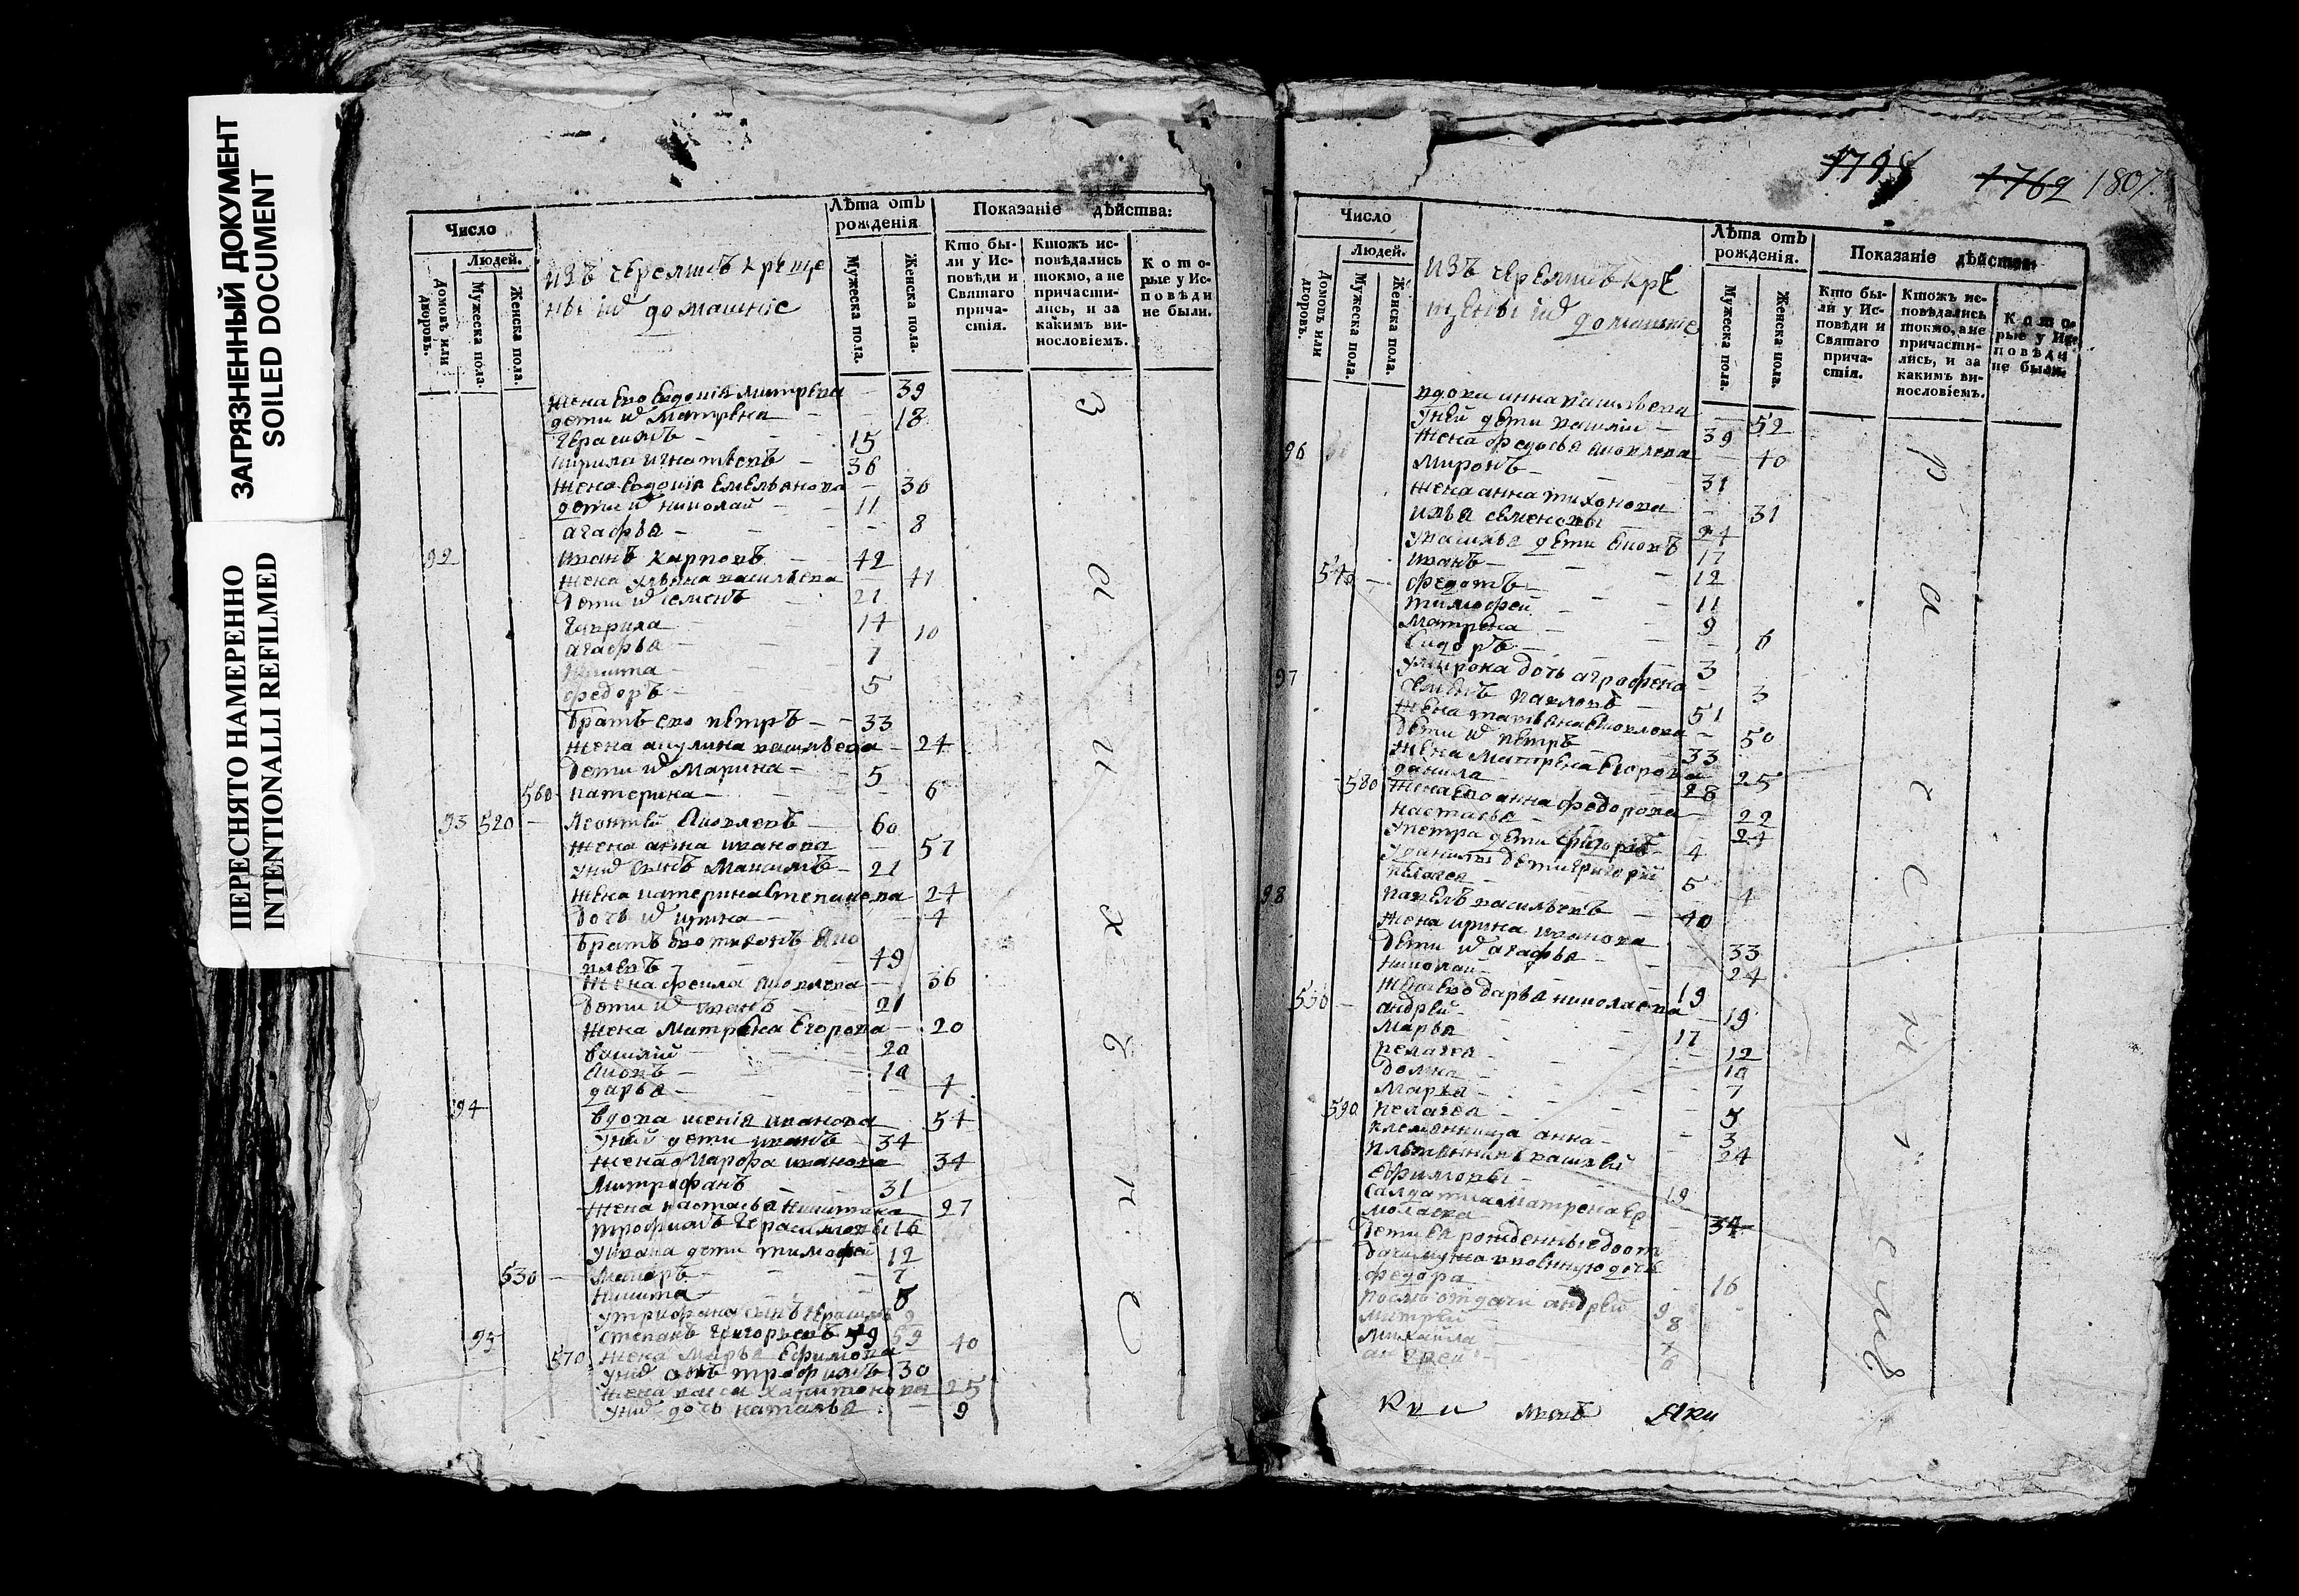 ЗАГРЯЗНЕННЫЙ ДОКУМЕНТ
SOILED DOCUMENT
ПЕРЕСНЯТО НАМЕРЕННО
INTENTIONALLI REFILMED
Число
Людей.
Домовъ или дворовъ.
Мужеска пола.
Женска пола.
изъ черемисъ креще
ны ихъ домашніе
Лѣта отъ рожденія
Мужеска пола.
Женска пола.
Показаніе дѣйства:
Кто бы-
ли у Ис-
повѣди и
Святаго
прича-
стія.
Ктожъ ис-
повѣдались
токмо, а не
причасти-
лись, и за
какимъ ви-
нословіемъ.
Кото-
рые у Ис-
повѣди
не были.
жена ево Евдокія Митрева — 39
дети их Матрена — 18
Герасимъ — 15
Кирила Игнатьевъ — 36
жена Евдокія Емельянова — 30
дети их николай — 11
агафья — 8
92 иванъ карповъ — 42
жена ульяна васильева — 41
дети их семенъ 21
гаврила 14
агафья — 10
никита 7
федоръ — 5
братъ ево петръ — 33
жена акулина васильева — 24
дети их Марина — 5
560 катерина — 6
93 520 — Леонтей Яковлевъ — 60
жена анна иванова — 57
у них сынъ Максимъ — 21
жена катерина степанова 24
дочь их ирина — 4
братъ ево тихонъ Яко
влевъ — 49
жена фекла яковлева — 36
дети их иванъ — 21
жена Матрена Егорова — 20
Василій — 20
Яковъ — 10
дарья — 4
94 вдова ксенія иванова 54
у ней дети иванъ 34
жена Марфа иванова 34
Митрофанъ — 31
жена настасья Никитина 27
трофимъ Герасимовъ 16
у ивана дети тимофей 12
530 — — 7
Никита — 5
95 степанъ григорьевъ 59 59
570 жена Марья Ефимова — 40
у них сынъ трофимъ 30
жена харитонова 25
у них дочь наталья — 9
З а и х 2 н С
1798 1769 1807
Число
Людей.
Домовъ или дворовъ.
Мужеска пола.
Женска пола.
изъ черемисъ кре
щены их домашніе
Лѣта отъ рожденія.
Мужеска пола.
Женска пола.
Показаніе дѣйства:
Кто бы-
ли у Ис-
повѣди и
Святаго
прича-
стія.
Ктожъ ис-
повѣдались
токмо, а не
причасти-
лись, и за
какимъ ви-
нословіемъ.
Кото-
рые у Ис-
повѣди
не были.
вдова анна васильева — 52
у ней дети василій — 39
96 жена федосья яковлева — 40
Миронъ — 31
жена анна тихонова — 31
илья семеновы 24
у василья дети Яковъ 17
иванъ — 12
федотъ — 11
тимофей — 9
Матрена — 6
Сидоръ — 3
у мирона дочь аграфена — 3
97 Семенъ павловъ — 51
жена татьяна яковлева — 50
дети их петръ — 33
жена Матрена Егорова 25
580 данила — 28
жена ево анна федорова 22
настасья — 24
у петра дети григорій — 4
у данилы дети григорій 5
пелагея — 4
98 павелъ васильевъ — 40
жена ирина иванова — 33
дети их агафья — 24
николай — 19
жена ево дарья николаева — 19
андрей — 17
Марья — 12
пелагея — 10
домна — 7
Марья — 5
590 пелагея — 3
племянница анна — 24
племянникъ василей
Ефимовы — 19
салдатка матрена Ер
молаева — 34
дети Ея рожденные до от
дачи мужа
федора — 16
после отдачи андрей 9
митрей — 8
михайла — 7
андрей — 6